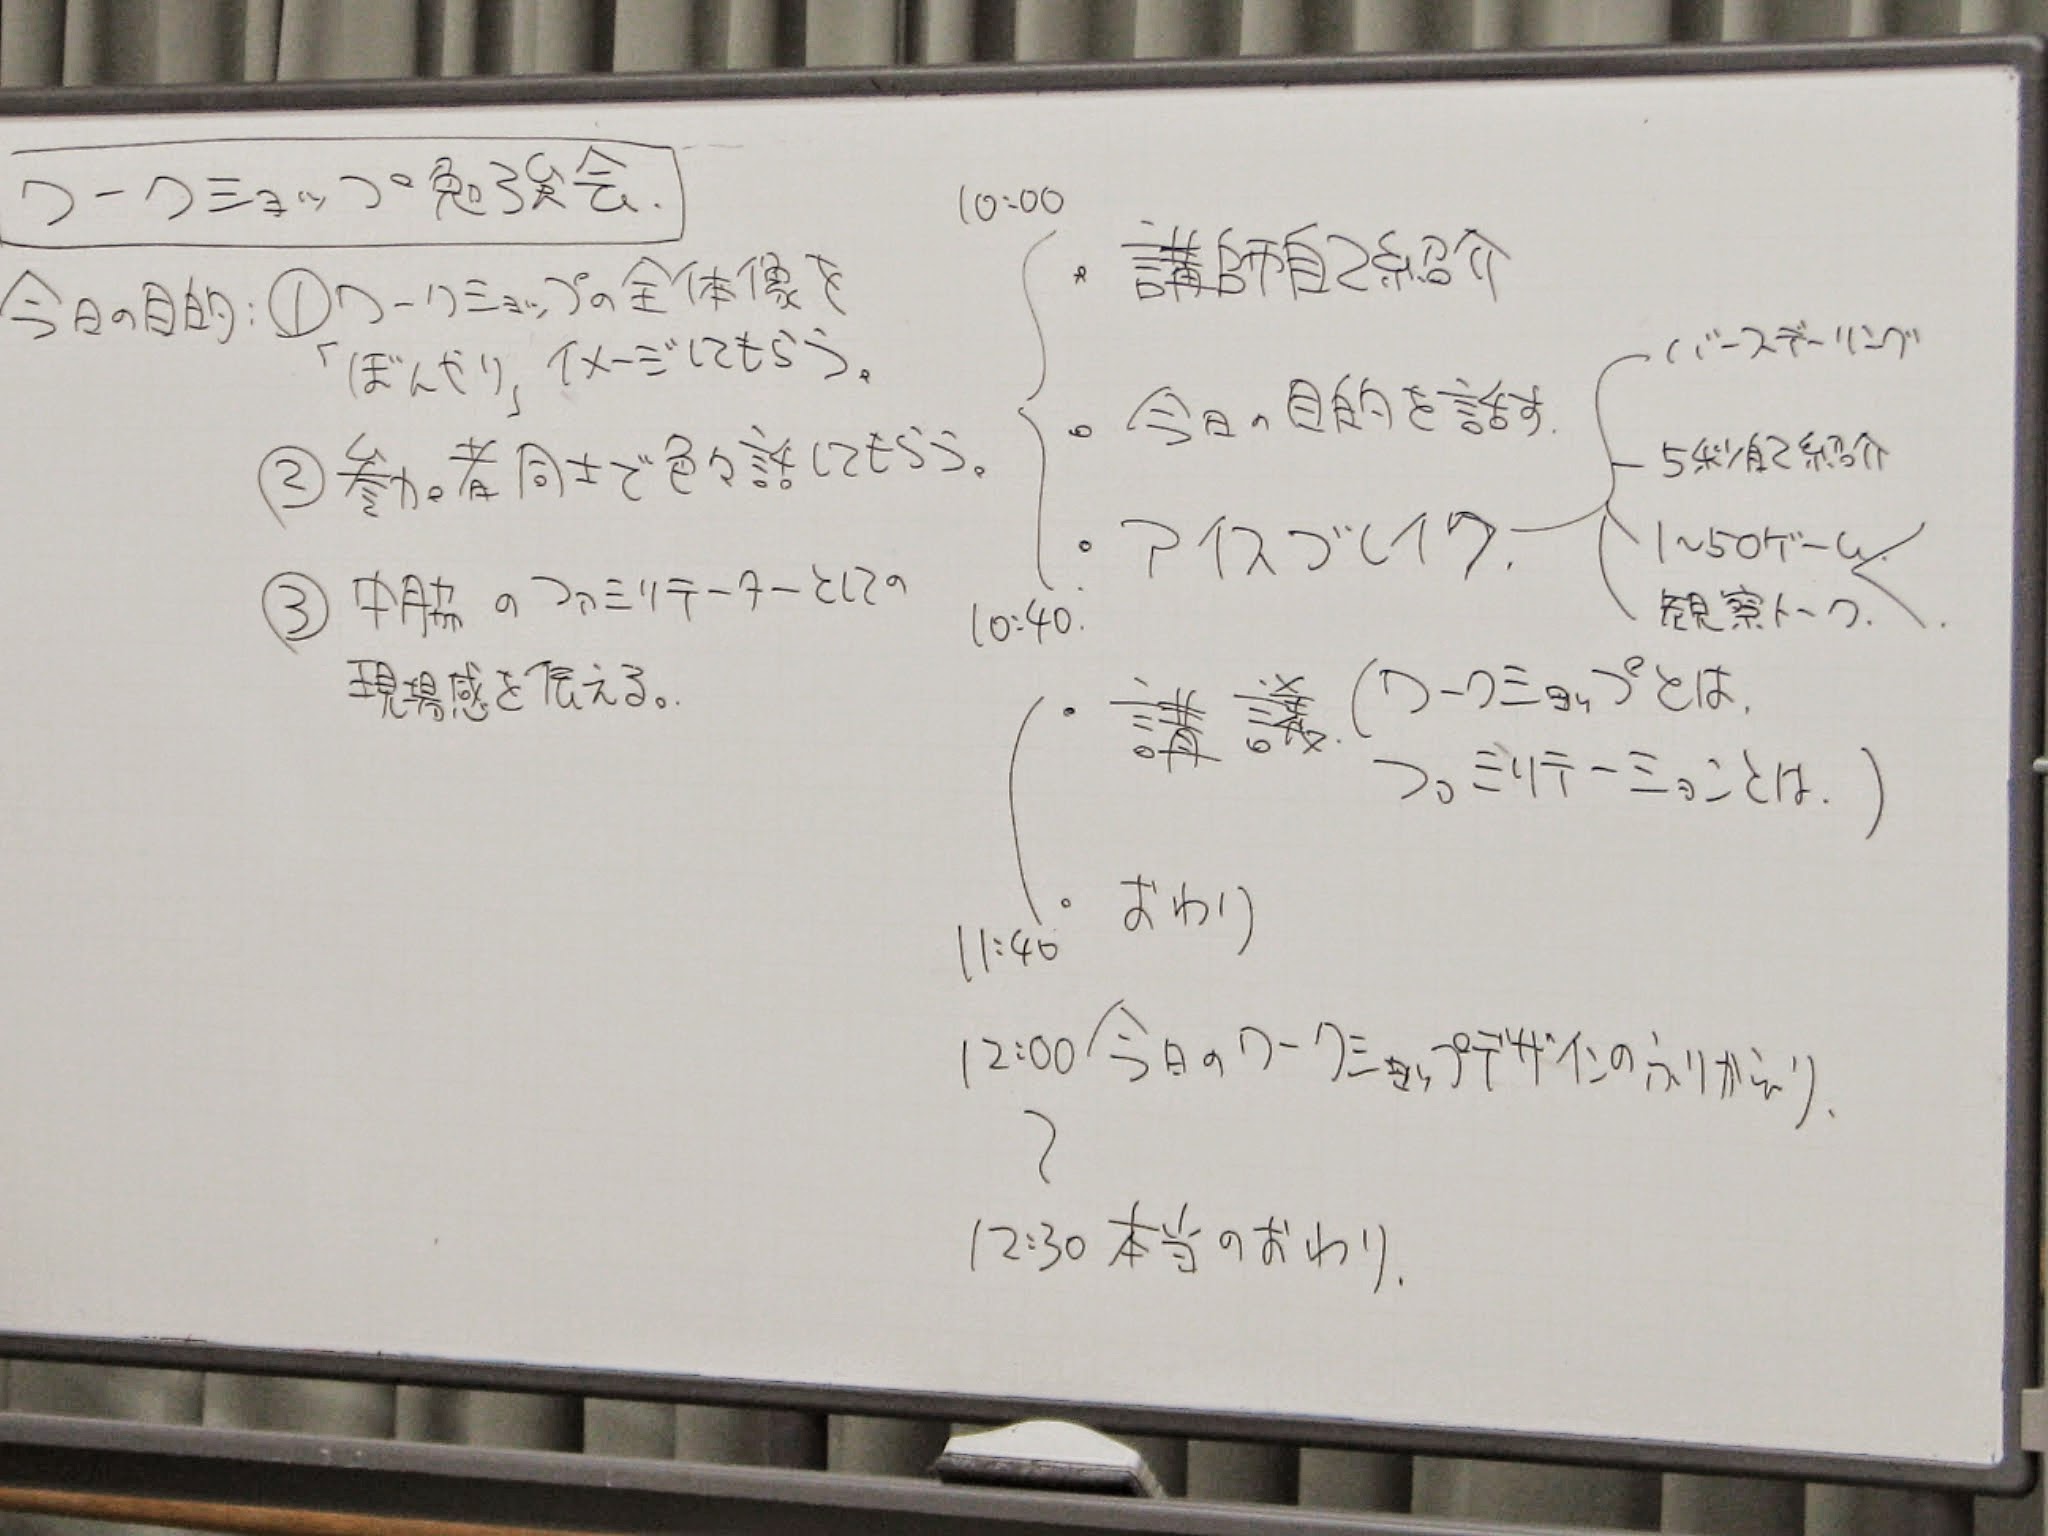 ワークショップ勉強会.
今日の目的:①ワークショップの全体像を
「ぼんやり」イメージしてもらう。
②参加者同士で色々話してもらう。
③中脇のファシリテーターとしての
現場感を伝える。
10:00
・講師自己紹介
・今日の目的を話す.
・アイスブレイク.
バースデーリング
5秒自己紹介
1~50ゲーム.
観察トーク.
10:40.
・講義.(ワークショップとは.
ファシリテーションとは.)
・おわり
11:40
12:00 今日のワークショップデザインのふりかえり.
〜
12:30 本当のおわり.